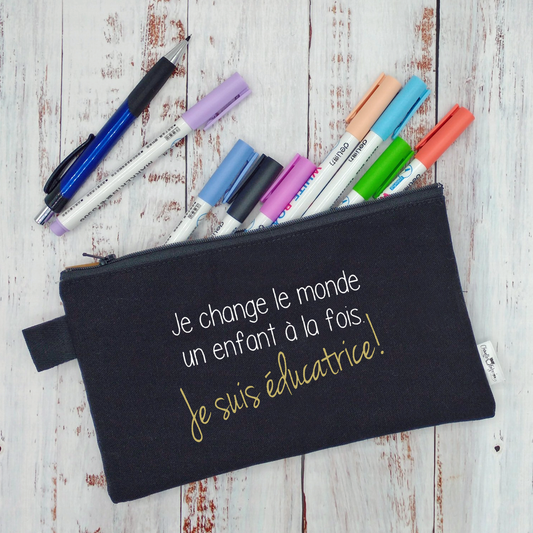 Je change le monde
un enfant à la fois.
Je suis éducatrice!
deli
deli
WHITE BO